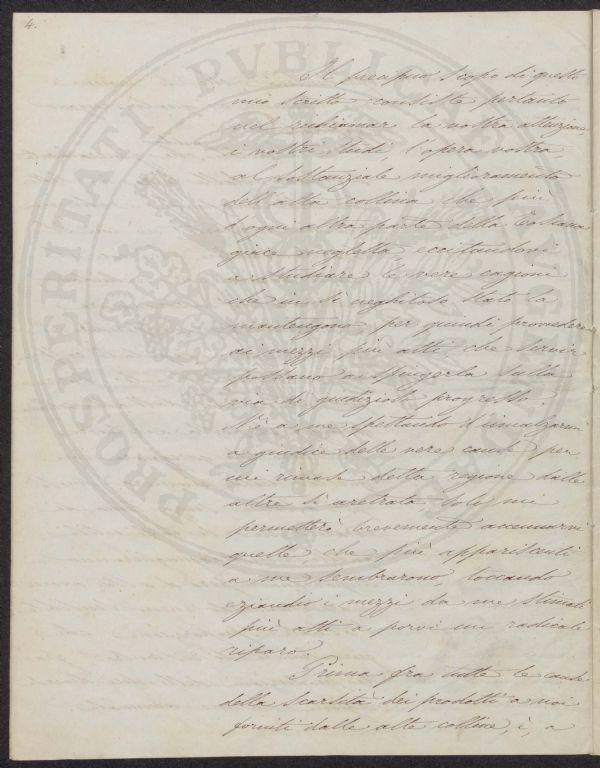 4.
Il precipuo scopo di questo
mio scritto consiste pertanto
nel richiamar la vostra attenzione
i vostri studi, l'opera vostra
al sostanziale miglioramento
dell'alta collina che più
d'ogni altra parte della Toscana
giace negletta, eccitandovi
a studiare le vere cagioni
che in sì neghitoso stato la
mantengono per quindi provvedere
ai mezzi più atti che servir
possano a spingerla sulla
via di giudizioso progresso.
Nè a me spettando d'innalzarmi
a giudice delle vere cause per
cui rimase detta regione dalle
altre sì aretrata solo mi
permetterò brevemente accennarvi
quelle, che più appariscenti
a me sembrarono, toccando
eziandio i mezzi da me stimati
più atti a porvi un radicale
riparo.
Prima fra tutte le cause
della scarsità dei prodotti a noi
forniti dalle alte colline, è, a
PROSPERITATI PVBLICAE